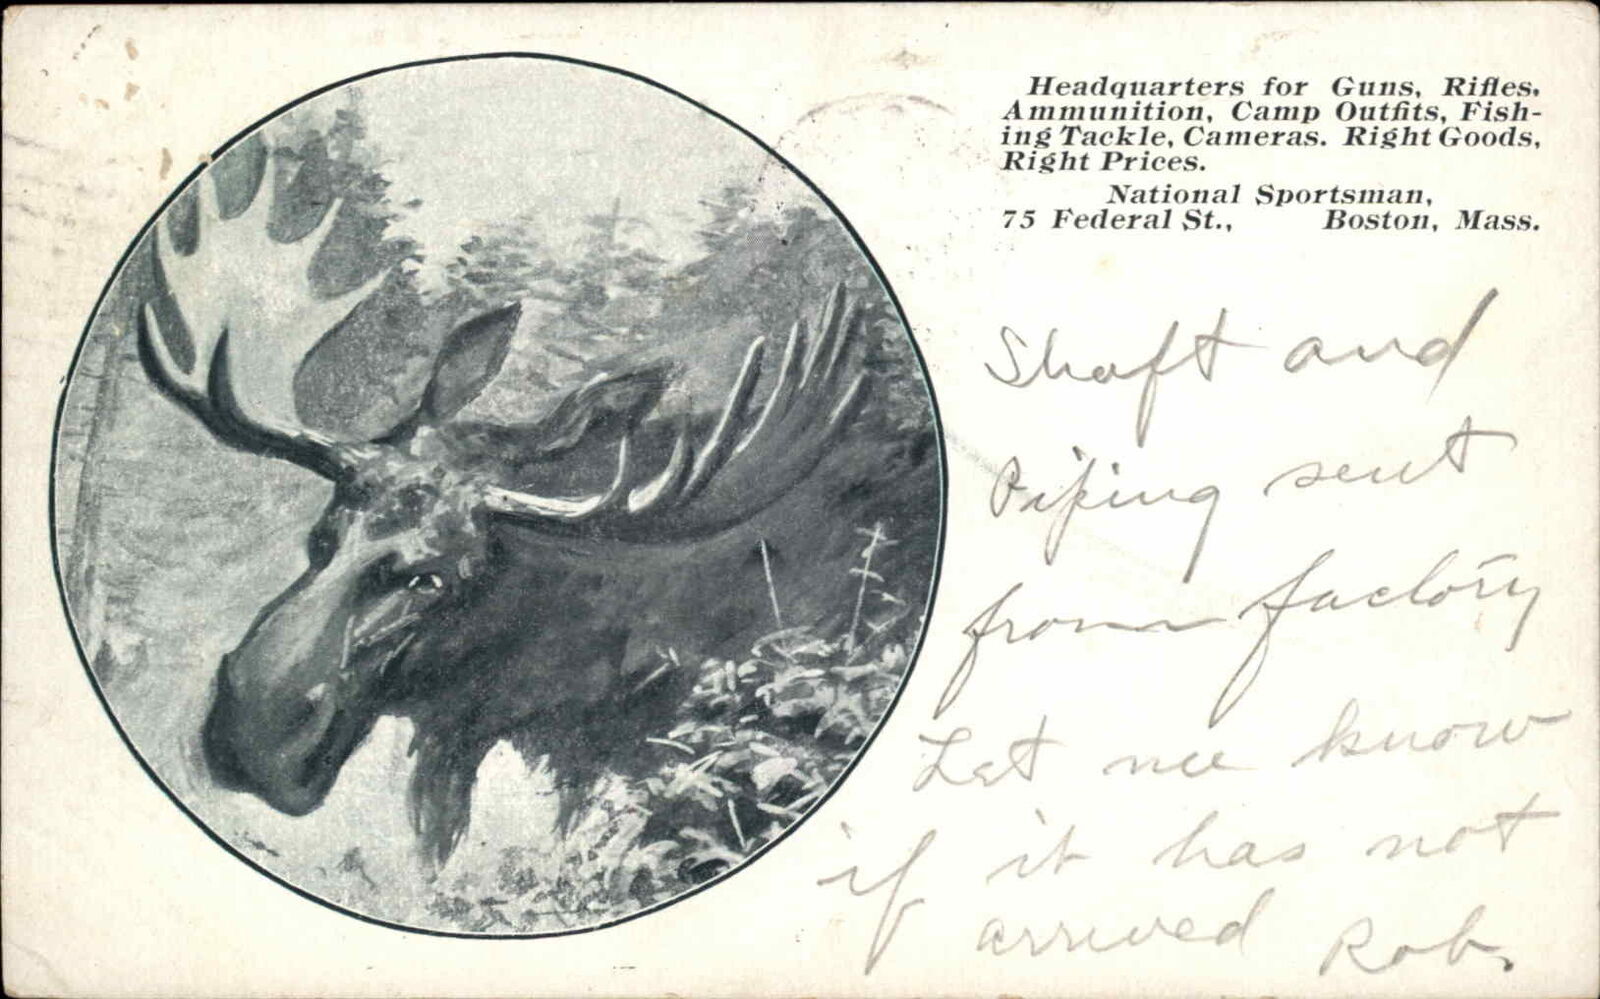 Headquarters for Guns, Rifles,
Ammunition, Camp Outfits, Fish-
ing Tackle, Cameras. Right Goods,
Right Prices.
National Sportsman,
75 Federal St., Boston, Mass.
Shaft and
Piping sent
from factory
Let me know
if it has not
arrived Rob.